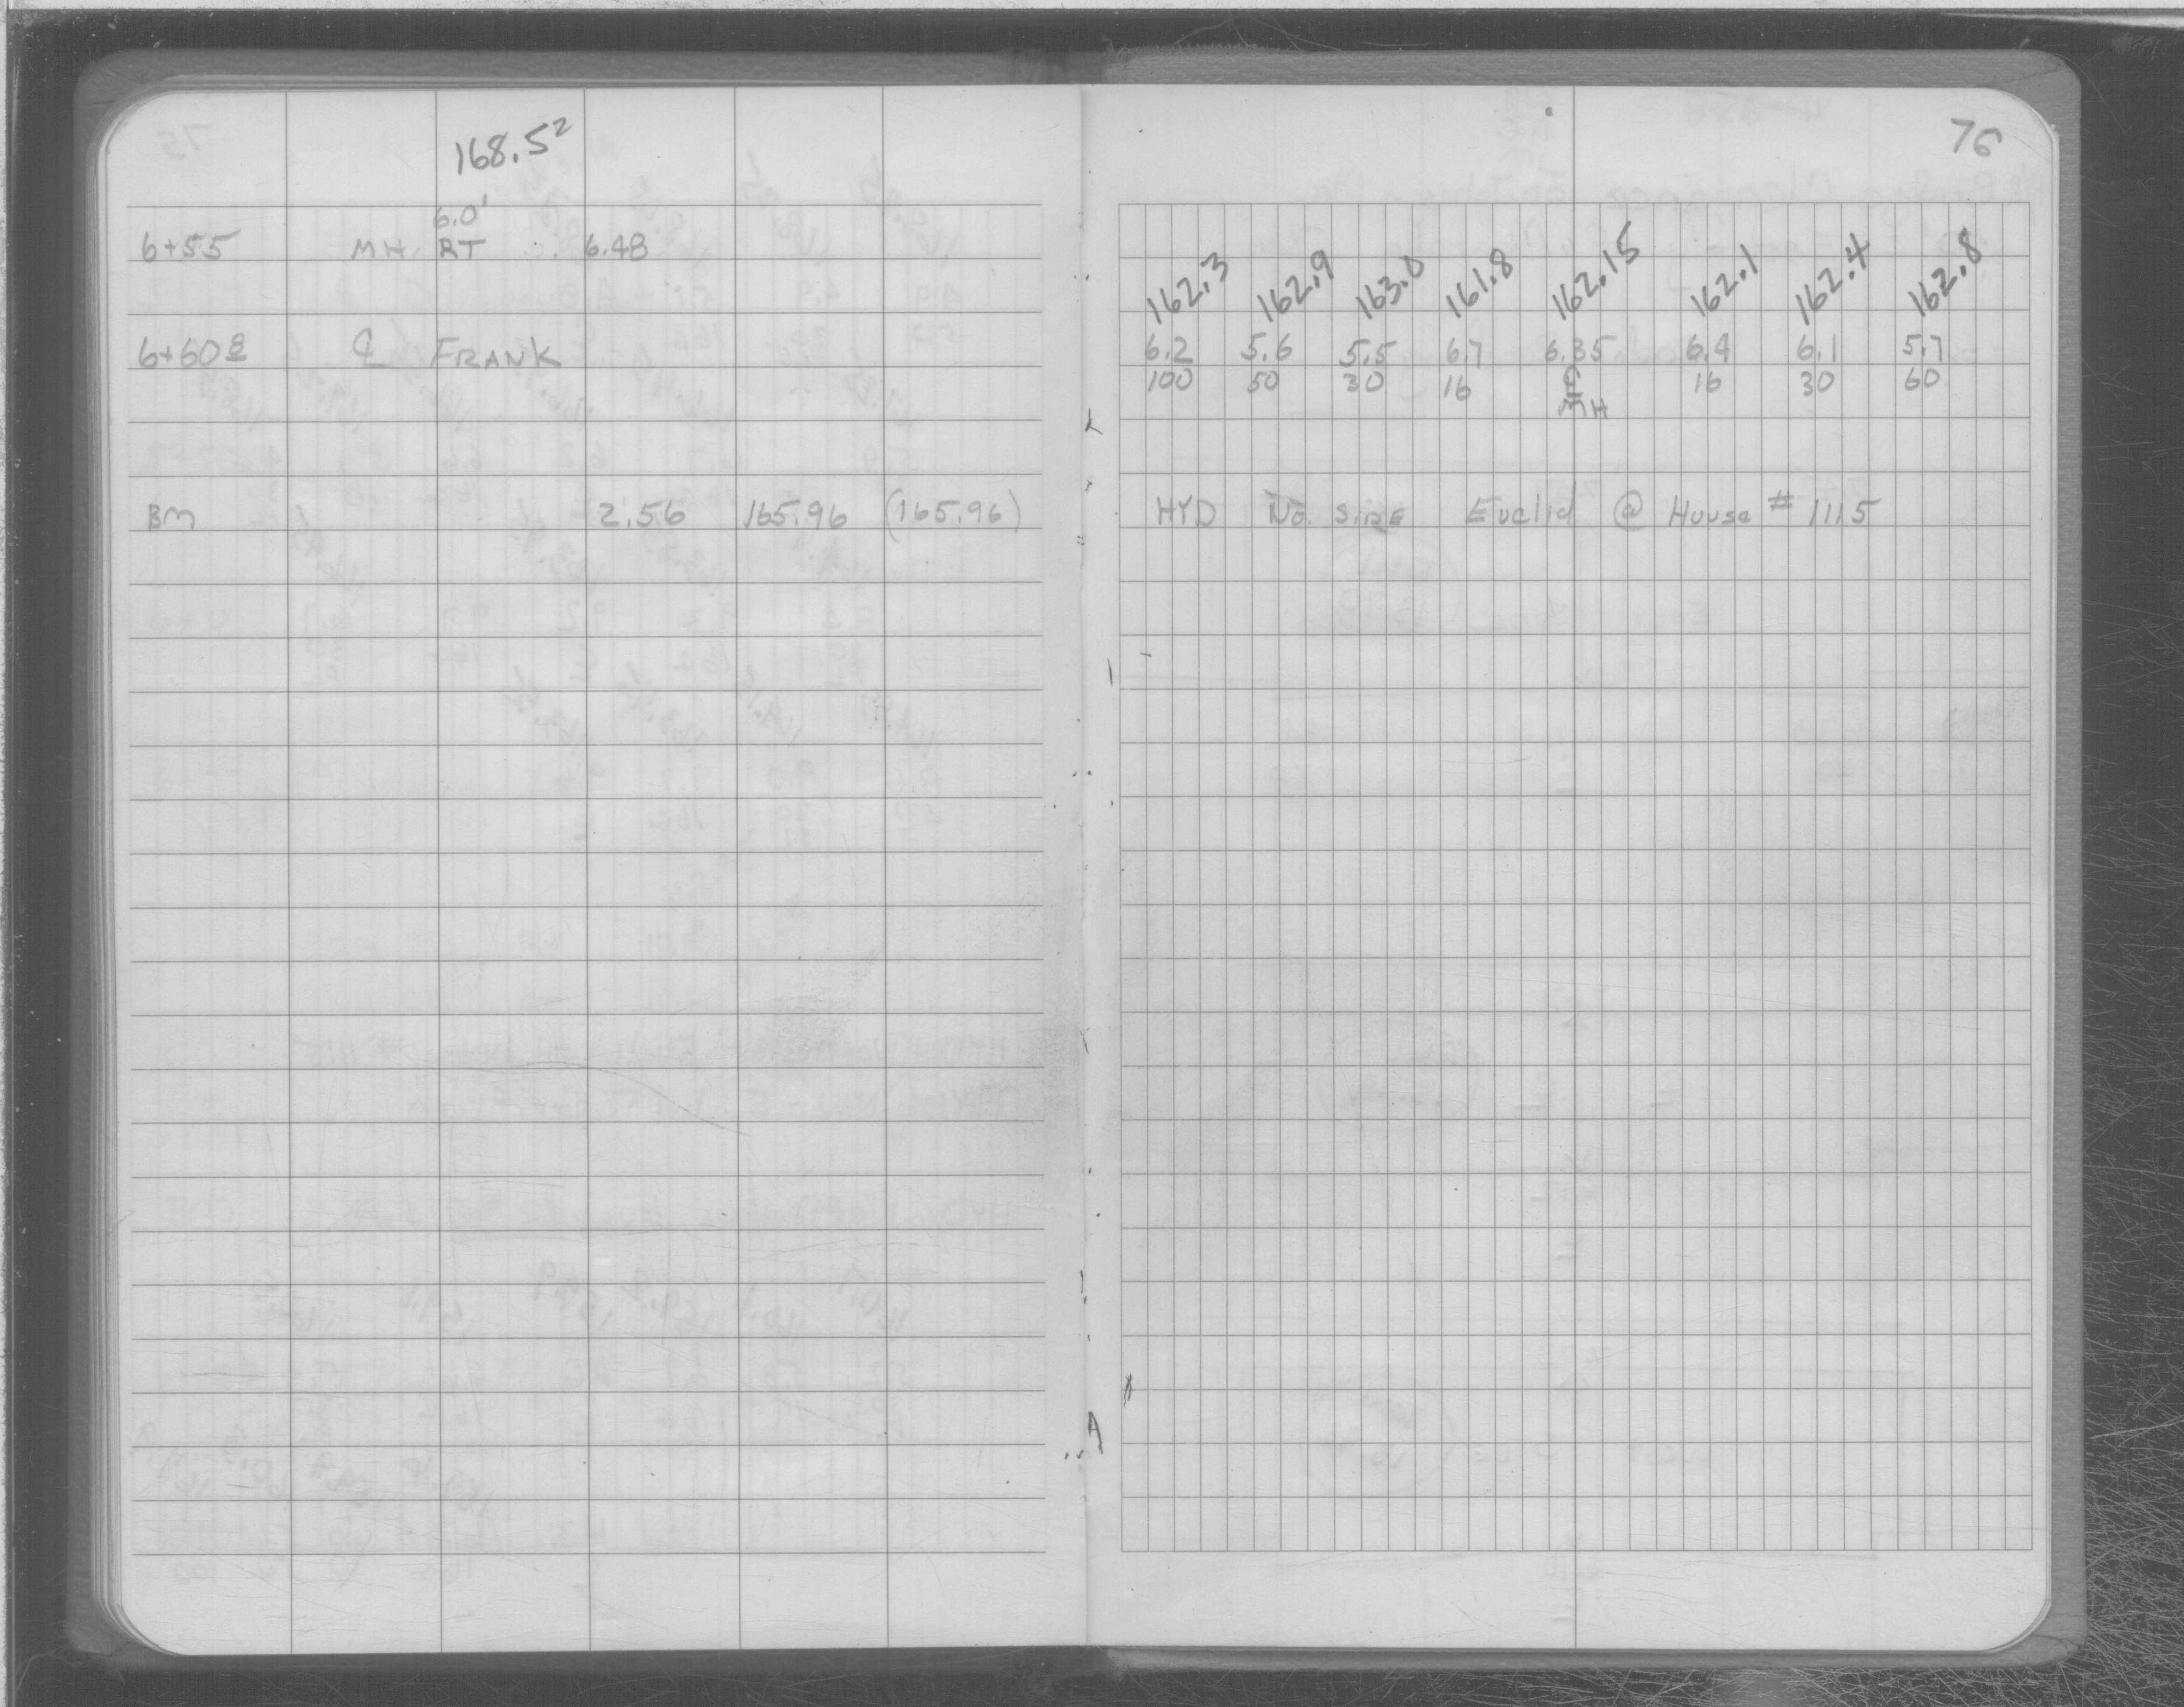 168.5²
6.0'
6+55 MH. RT 6.48
6+60 8 ℄ FRANK
BM 2.56 165.96 (165.96)
76
162.3 162.9 163.0 161.8 162.15 162.1 162.4 162.8
6.2 5.6 5.5 6.7 6.35 6.4 6.1 5.7
100 50 30 16 ℄ 16 30 60
MH
HYD No. SIDE Euclid @ House # 1115